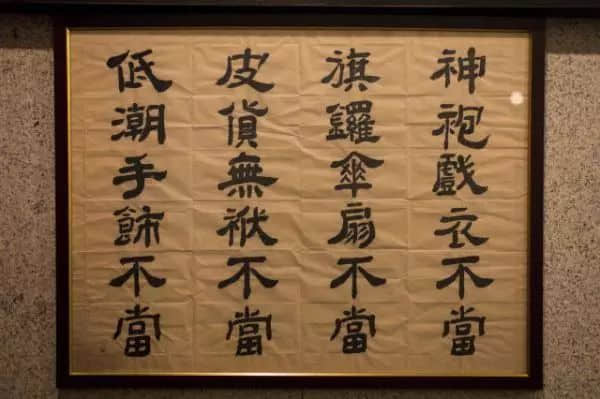 神袍戲衣不當
旗鑼傘扇不當
皮貨無袱不當
低潮手飾不當